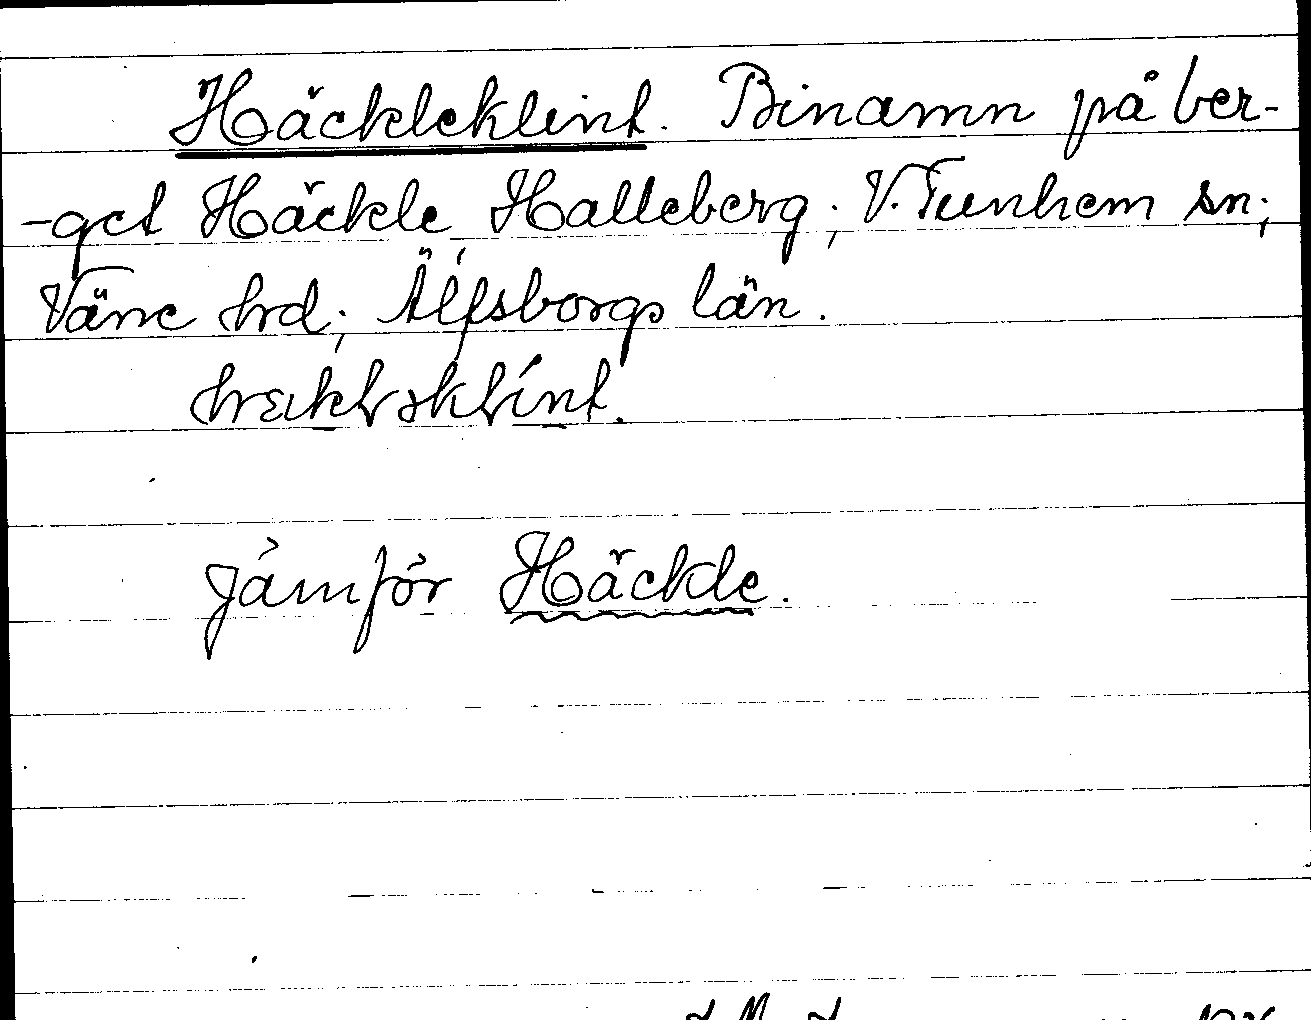 Häckleklint. Binamn på ber-
-get Häckle, Halleberg; V. Tunhem sn;
Väne hrd; Älfsborgs län.
Jämför Häckle.